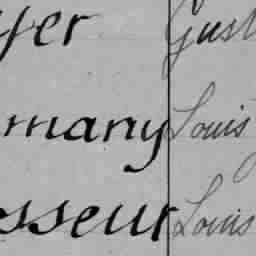 yer Gust
many Louis
sseur Louis